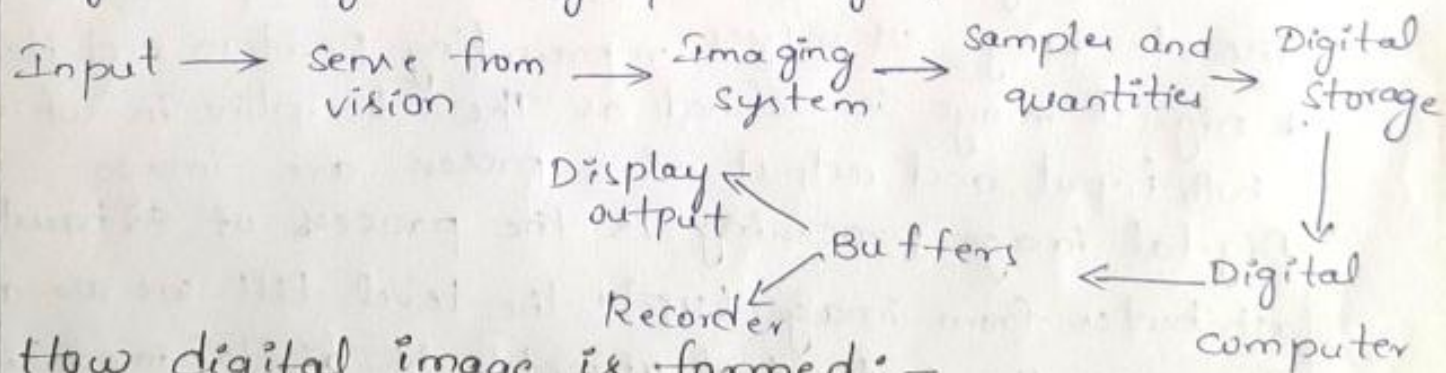 Input → sense from vision → Imaging system → sampler and quantities → Digital storage
Display output
Buffers ← Digital computer
Recorder
How digital image is formed:-